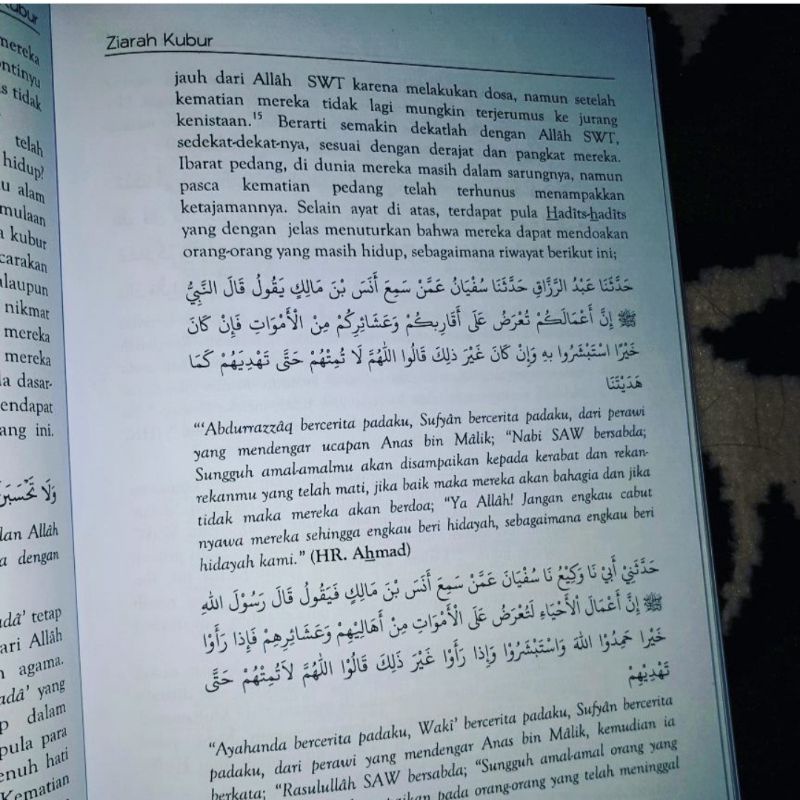 kubur
mereka
ontinyu
s tidak
telah
hidup?
u alam
mulaan
a kubur
carakan
alaupun
nikmat
mereka
mereka
la dasar-
endapat
ang ini.
وَلَا تَحْسَبَنَّ
dan Allâh
a dengan
adâ' tetap
ari Allâh
n agama.
adâ' yang
p dalam
pula para
enuh hati
Kematian
Ziarah Kubur
jauh dari Allâh SWT karena melakukan dosa, namun setelah
kematian mereka tidak lagi mungkin terjerumus ke jurang
kenistaan.¹⁵ Berarti semakin dekatlah dengan Allâh SWT,
sedekat-dekat-nya, sesuai dengan derajat dan pangkat mereka.
Ibarat pedang, di dunia mereka masih dalam sarungnya, namun
pasca kematian pedang telah terhunus menampakkan
ketajamannya. Selain ayat di atas, terdapat pula Hadîts-hadîts
yang dengan jelas menuturkan bahwa mereka dapat mendoakan
orang-orang yang masih hidup, sebagaimana riwayat berikut ini;
حَدَّثَنَا عَبْدُ الرَّزَّاقِ حَدَّثَنَا سُفْيَانُ عَمَّنْ سَمِعَ أَنَسَ بْنَ مَالِكٍ يَقُولُ قَالَ النَّبِيُّ
ﷺ إِنَّ أَعْمَالَكُمْ تُعْرَضُ عَلَى أَقَارِبِكُمْ وَعَشَائِرِكُمْ مِنْ الْأَمْوَاتِ فَإِنْ كَانَ
خَيْرًا اسْتَبْشَرُوا بِهِ وَإِنْ كَانَ غَيْرَ ذَلِكَ قَالُوا اللَّهُمَّ لَا تُمِتْهُمْ حَتَّى تَهْدِيَهُمْ كَمَا
هَدَيْتَنَا
"'Abdurrazzâq bercerita padaku, Sufyân bercerita padaku, dari perawi
yang mendengar ucapan Anas bin Mâlik; "Nabi SAW bersabda;
Sungguh amal-amalmu akan disampaikan kepada kerabat dan rekan-
rekanmu yang telah mati, jika baik maka mereka akan bahagia dan jika
tidak maka mereka akan berdoa; "Ya Allâh! Jangan engkau cabut
nyawa mereka sehingga engkau beri hidayah, sebagaimana engkau beri
hidayah kami." (HR. Ahmad)
حَدَّثَنِي أَبِيْ نَا وَكِيْعُ نَا سُفْيَانَ عَمَّنْ سَمِعَ أَنَسَ بْنَ مَالِكٍ فَيَقُولُ قَالَ رَسُوْلَ اللهِ
ﷺ إِنَّ أَعْمَالَ الْأَحْيَاءِ لَتُعْرَضُ عَلَى الْأَمْوَاتِ مِنْ أَهَالِيْهِمْ وَعَشَائِرِهِمْ فَإِذَا رَأَوْا
خَيْرًا حَمِدُوْا اللهَ وَاسْتَبْشَرُوْا وَإِذَا رَأَوْا غَيْرَ ذَلِكَ قَالُوْا اللَّهُمَّ لَاتُمِتْهُمْ حَتَّى
تَهْدِيْهِمْ
"Ayahanda bercerita padaku, Waki' bercerita padaku, Sufyân bercerita
padaku, dari perawi yang mendengar Anas bin Mâlik, kemudian ia
berkata; "Rasulullâh SAW bersabda; "Sungguh amal-amal orang yang
pada orang-orang yang telah meninggal